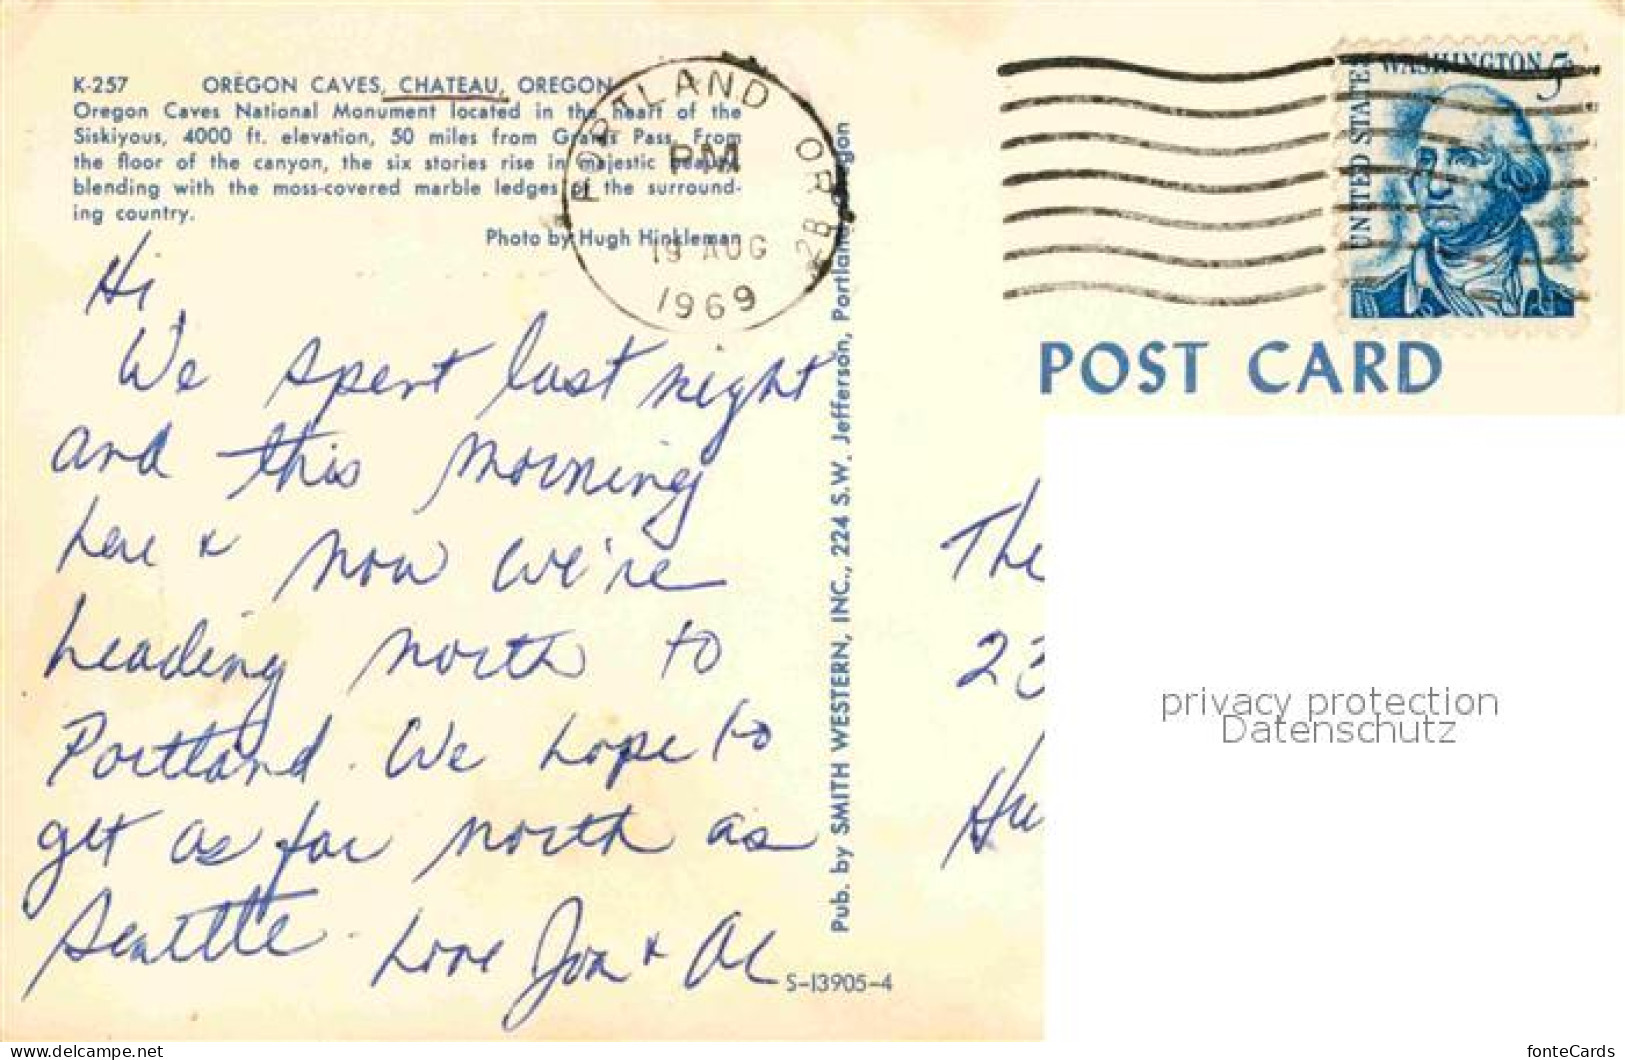 K-257 OREGON CAVES, CHATEAU, OREGON
Oregon Caves National Monument located in the heart of the
Siskiyous, 4000 ft. elevation, 50 miles from Grants Pass. From
the floor of the canyon, the six stories rise in majestic beauty
blending with the moss-covered marble ledges of the surround-
ing country.
Photo by Hugh Hinkleman
PORTLAND OR
PM
19 AUG
1969
UNITED STATES
WASHINGTON 5c
POST CARD
Hi
We spent last night
and this morning
here & now we're
heading north to
Portland. We hope to
get as far north as
Seattle. Love Jon & Al
Pub. by SMITH WESTERN, INC., 224 S.W. Jefferson, Portland, Oregon
S-13905-4
The
23
Hu
privacy protection
Datenschutz
www.delcampe.net
fonteCards